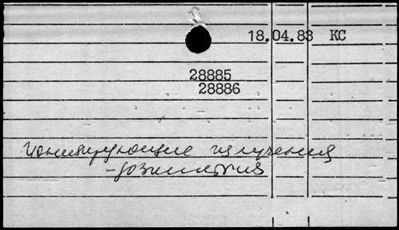 18.04.83 КС
28885
28886
ионизирующие излучения
-дозиметрия